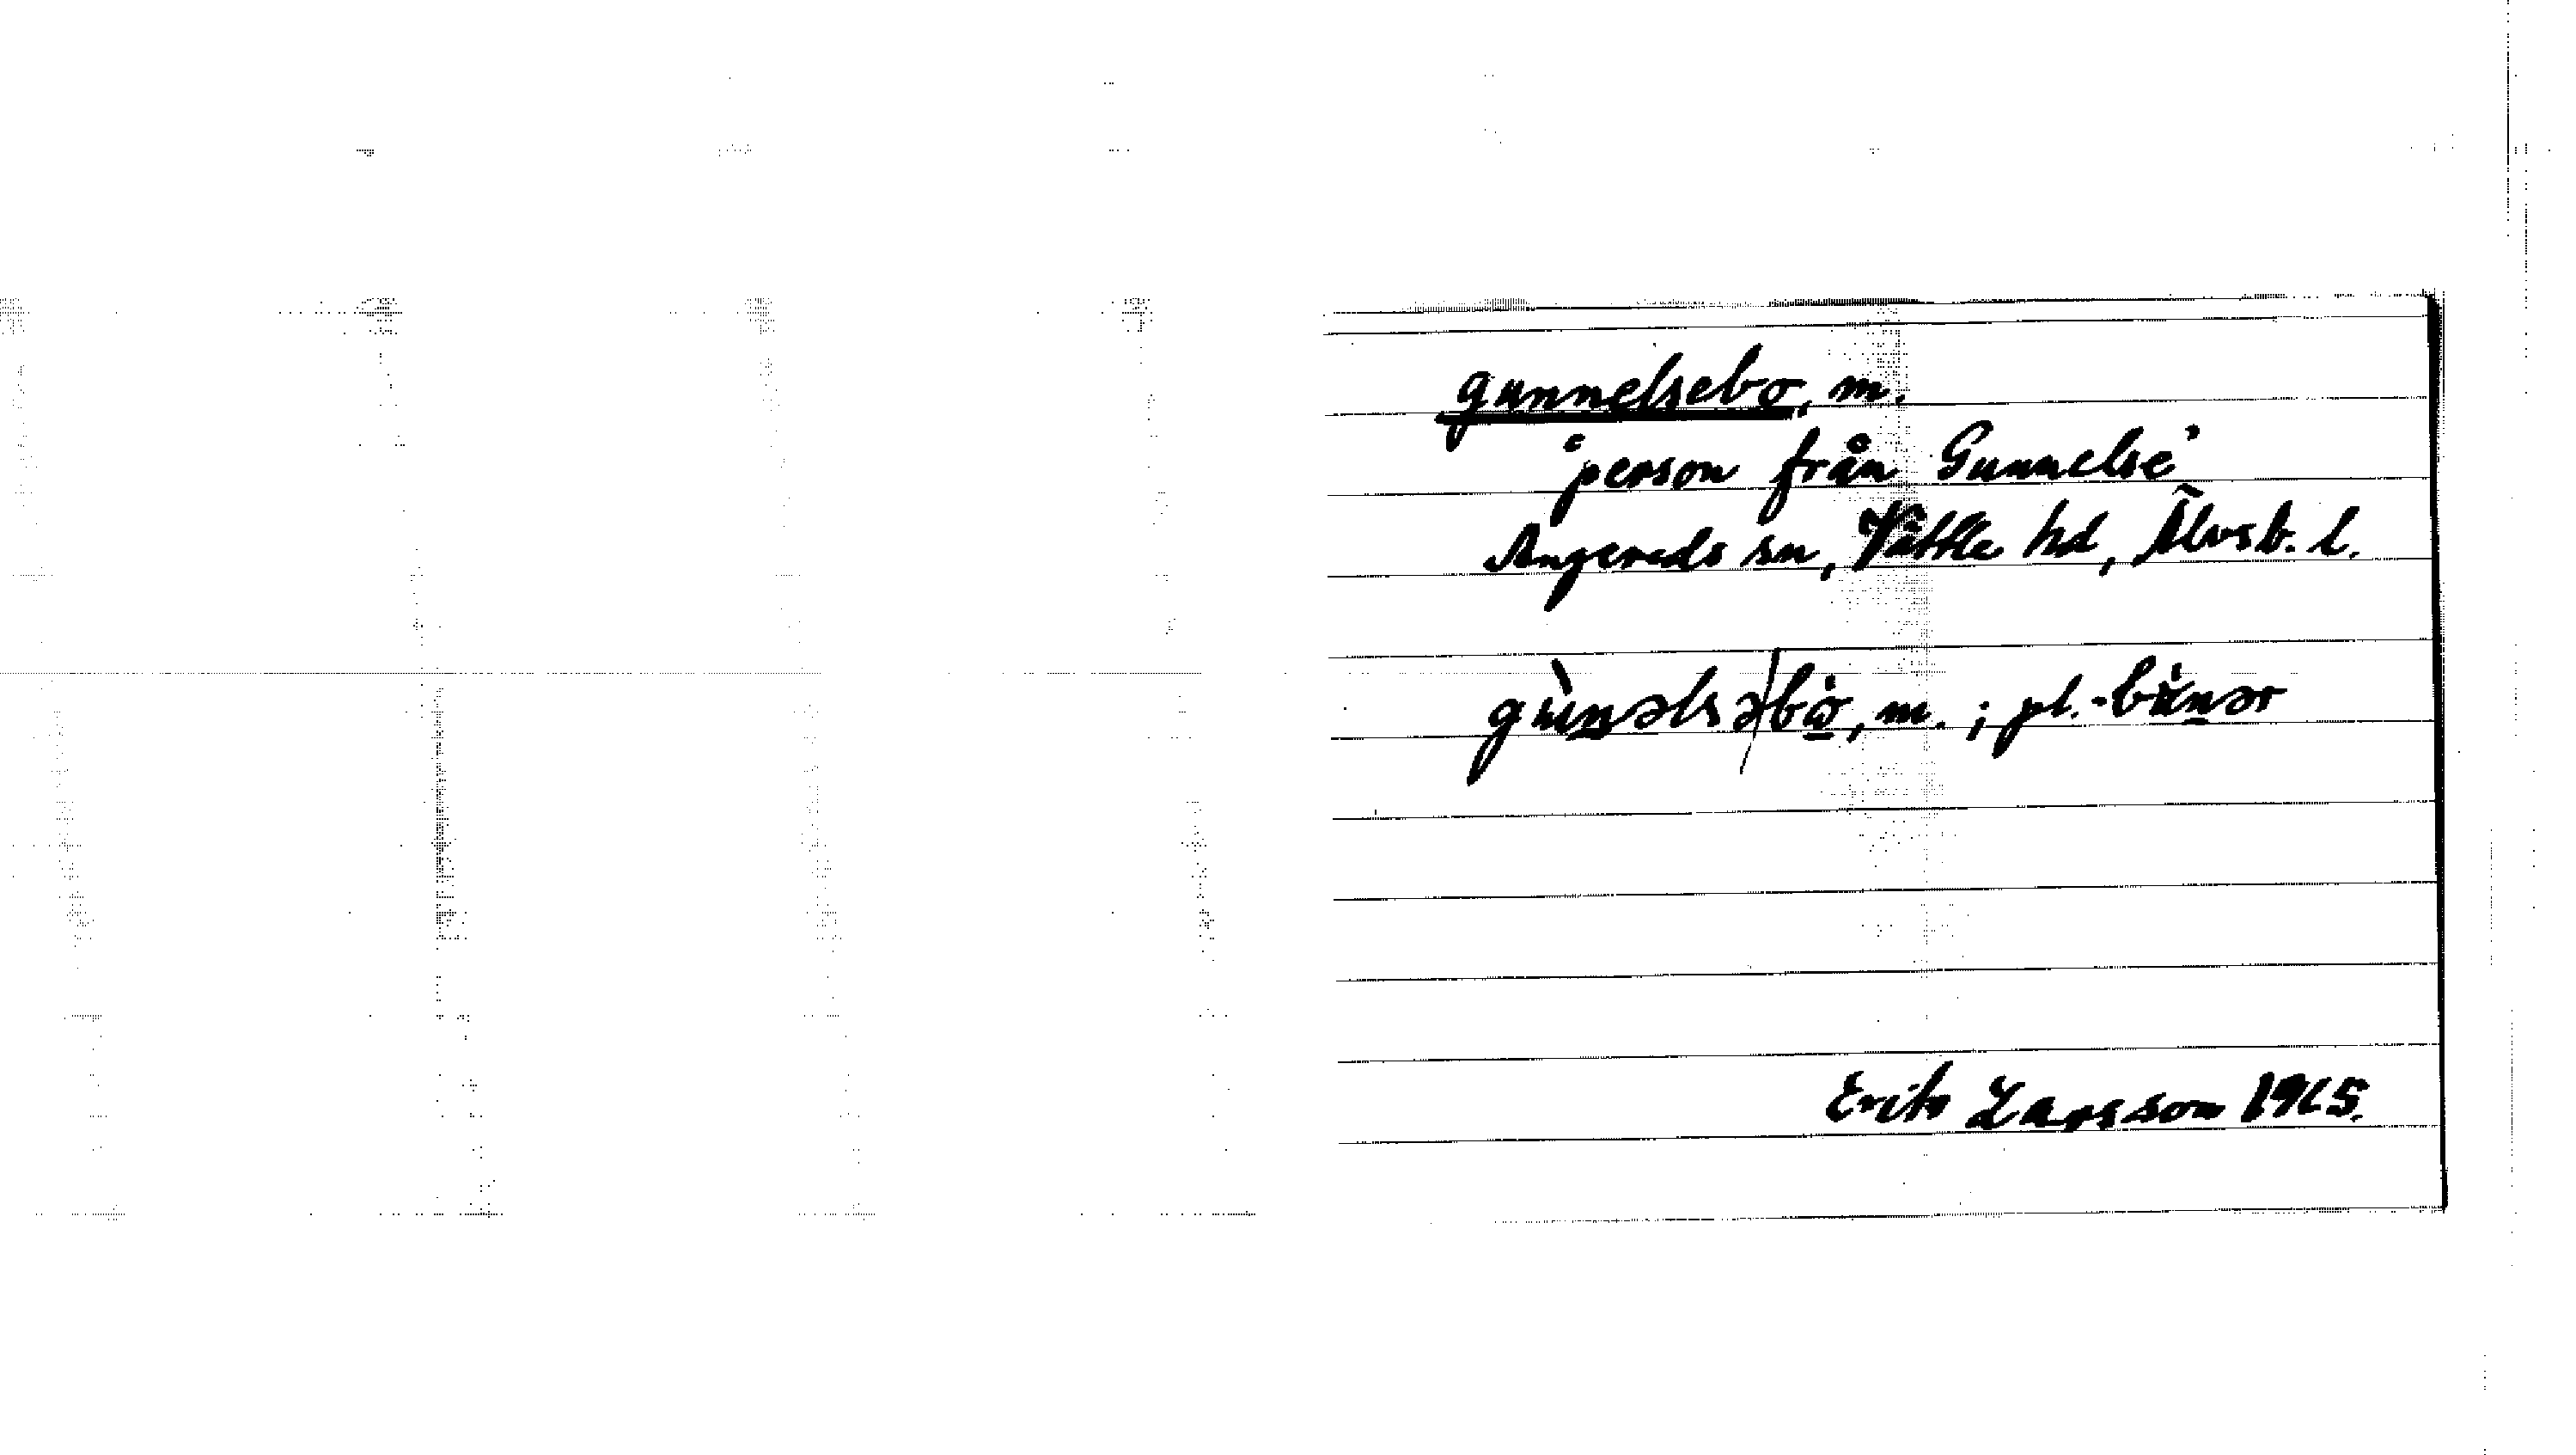 gunnelsebo, m.
'person från Gunnelse'
Angereds sn, Vättle hd, Älvsb. l.
gùnəlsə/bo, m. ; pl. -bùnər
Erik Larsson 1965.